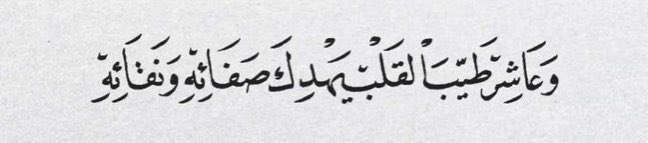 وَعَاشِرْ طَيِّبَ الْقَلْبِ يَهْدِكَ صَفَائِهِ وَنَقَائِهِ